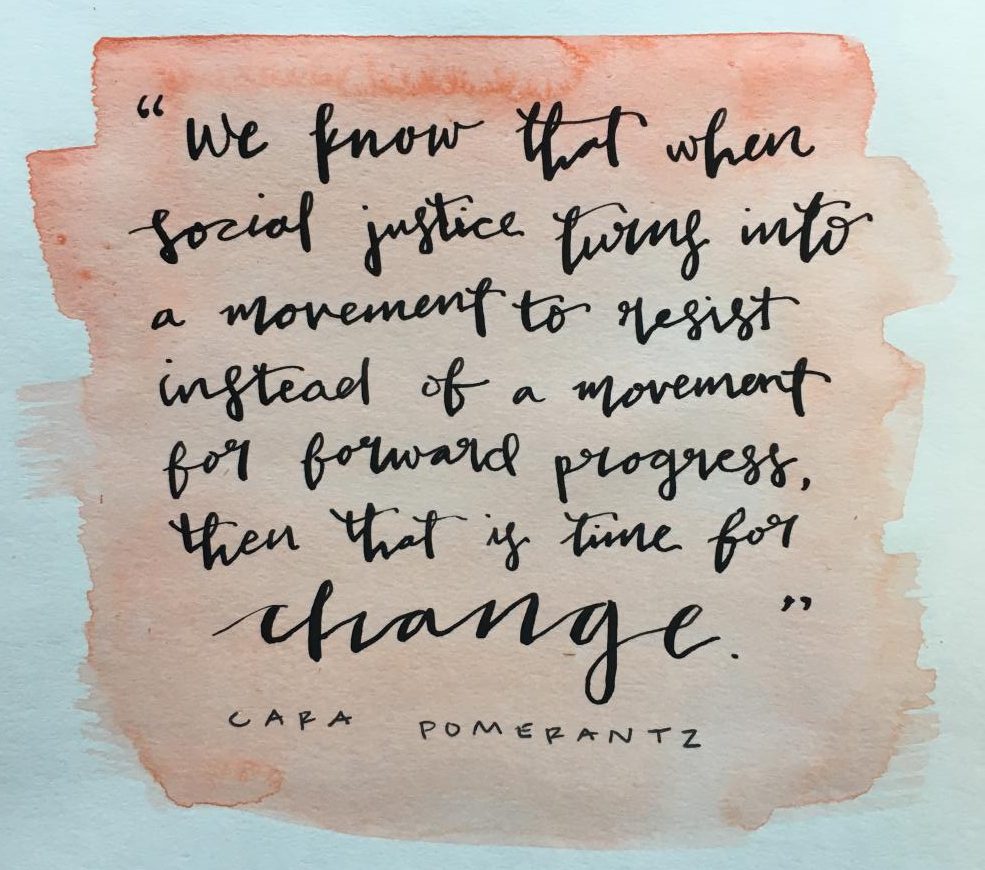 “We know that when
social justice turns into
a movement to resist
instead of a movement
for forward progress,
then that is time for
change.”
CARA POMERANTZ